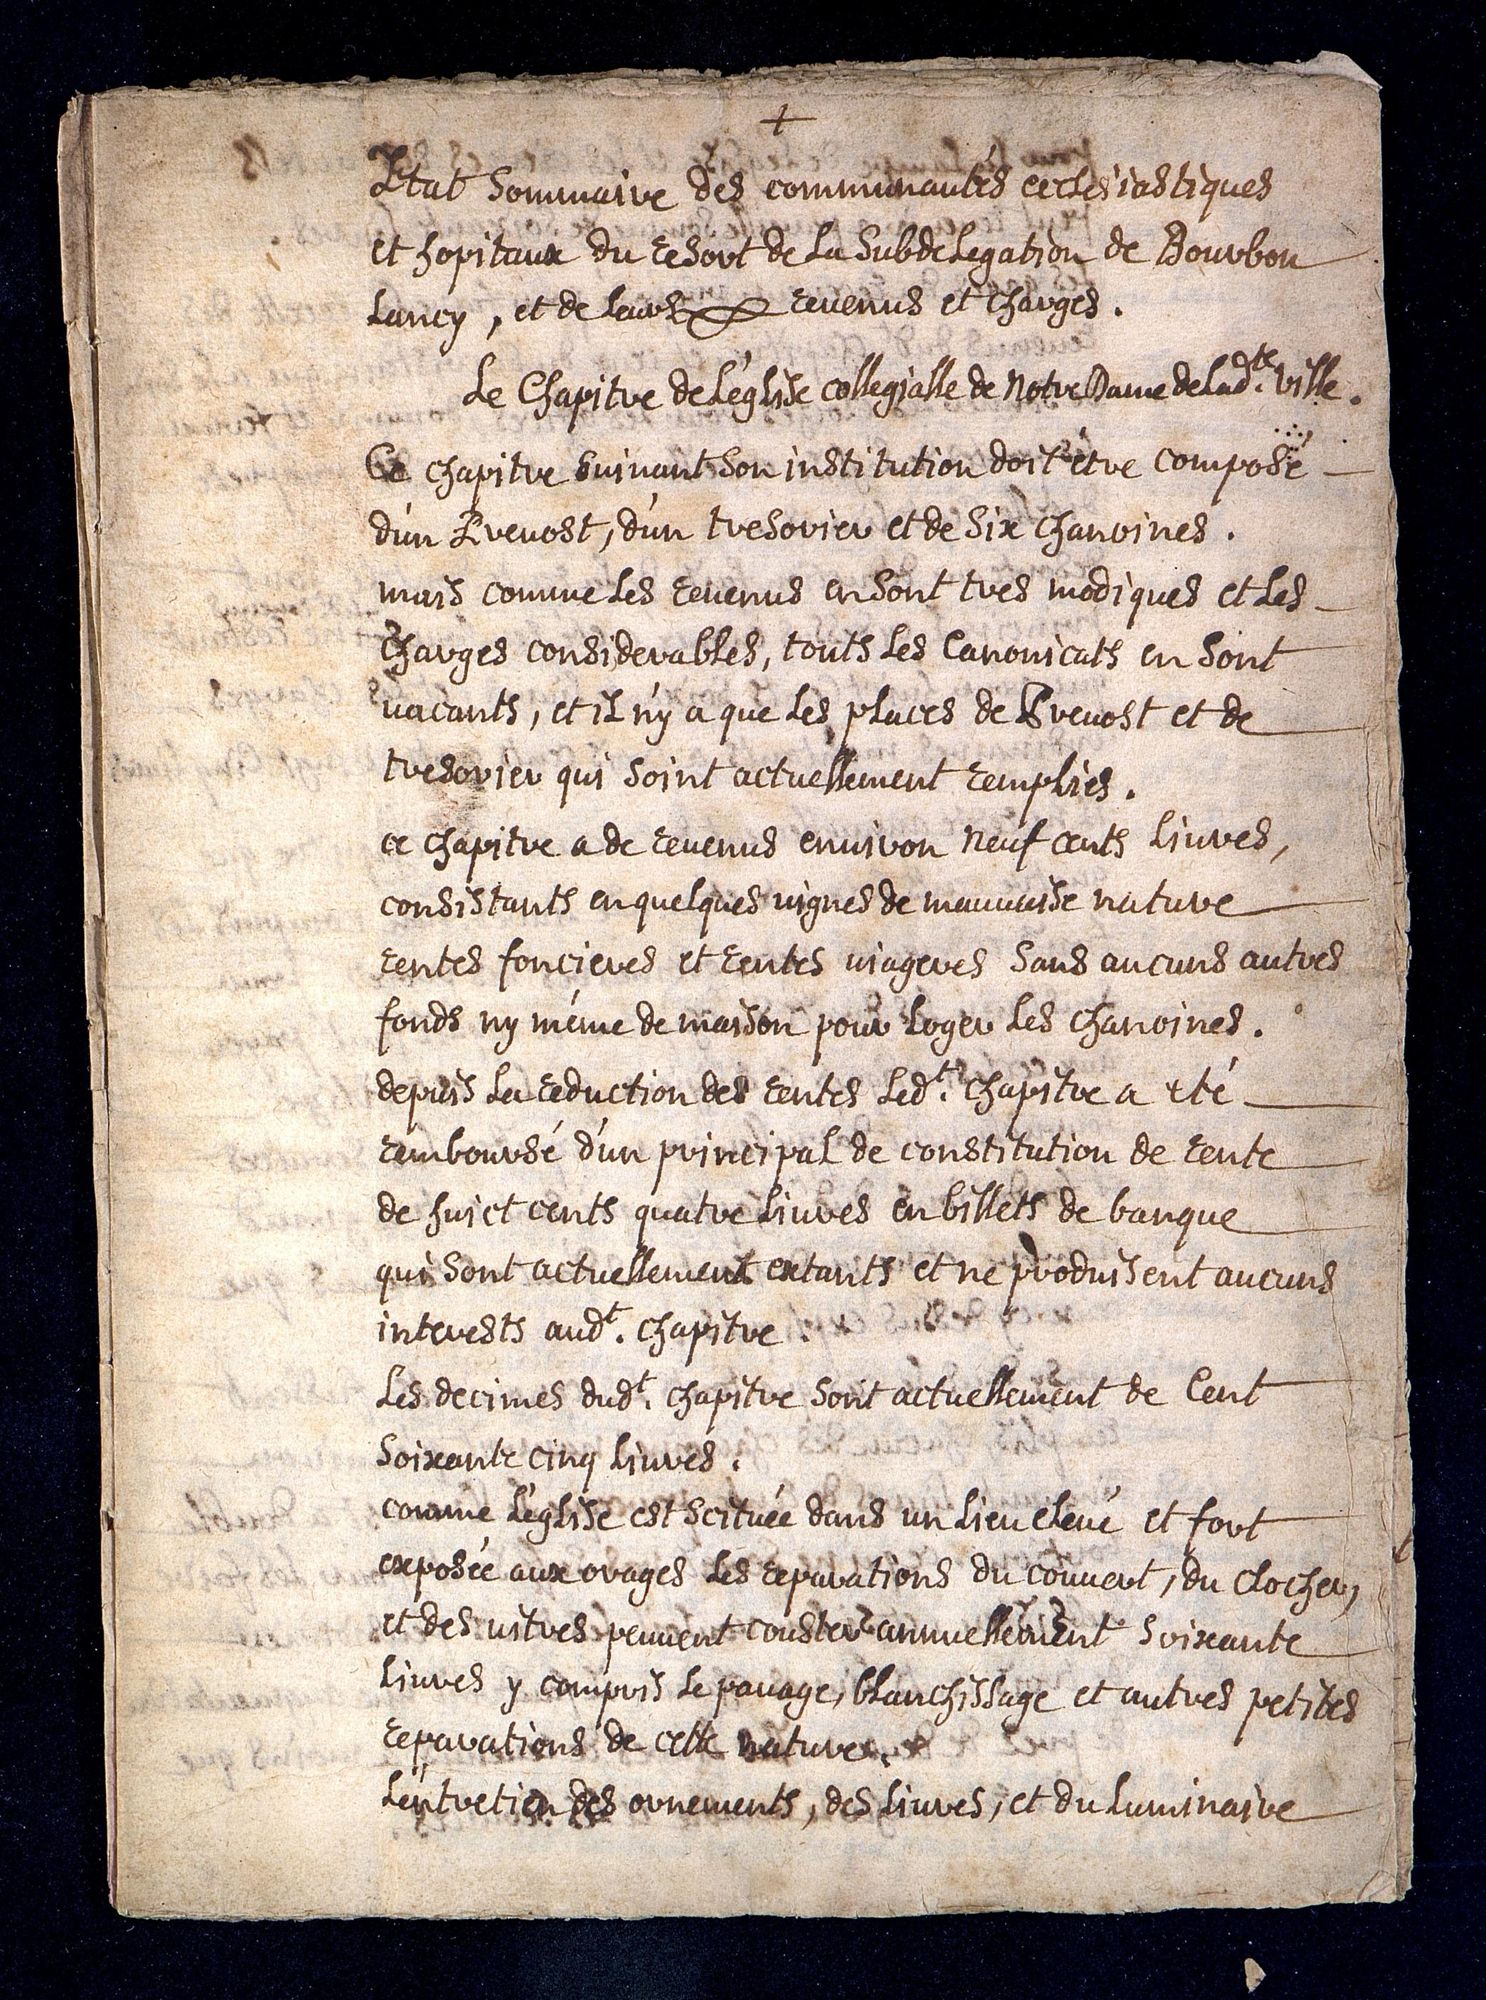 +
Etat Sommaire des communautés ecclesiastiques
et hopitaux du resort de la Subdelegation de Bourbon
Lancy, et de leurs revenus et charges.
Le Chapitre de L'église collegialle de Notre Dame de Ladte. ville.
Ce chapitre suivant Son institution doit étre composé
d'un Prevost, d'un tresorier et de Six chanoines.
mais comme Les revenus en Sont tres modiques et Les
charges considerables, touts Les Canonicats en Sont
vacants, et il n'y a que Les places de Prevost et de
tresorier qui Soint actuellement remplies.
ce chapitre a de revenus environ neuf cents Livres,
consistants en quelques vignes de mauvaise nature
rentes foncieres et rentes viageres Sans aucuns autres
fonds ny méme de maison pour Loger Les chanoines.
depuis La reduction des rentes Ledt. chapitre a eté
remboursé d'un principal de constitution de rente
de huict cents quatre Livres en billets de banque
qui Sont actuellement extants et ne produisent aucuns
interests audt. chapitre.
Les decimes dudt. chapitre Sont actuellement de Cent
Soixante cinq Livres.
comme L'église est Scituée dans un Lieu elevé et fort
exposée aux orages Les reparations du couvert, du clocher,
et des vitres peuvent couster annuellement Soixante
Livres y compris Le pavage, blanchissage et autres petites
reparations de cette nature.
L'entretien des ornements, des Livres, et du Luminaire